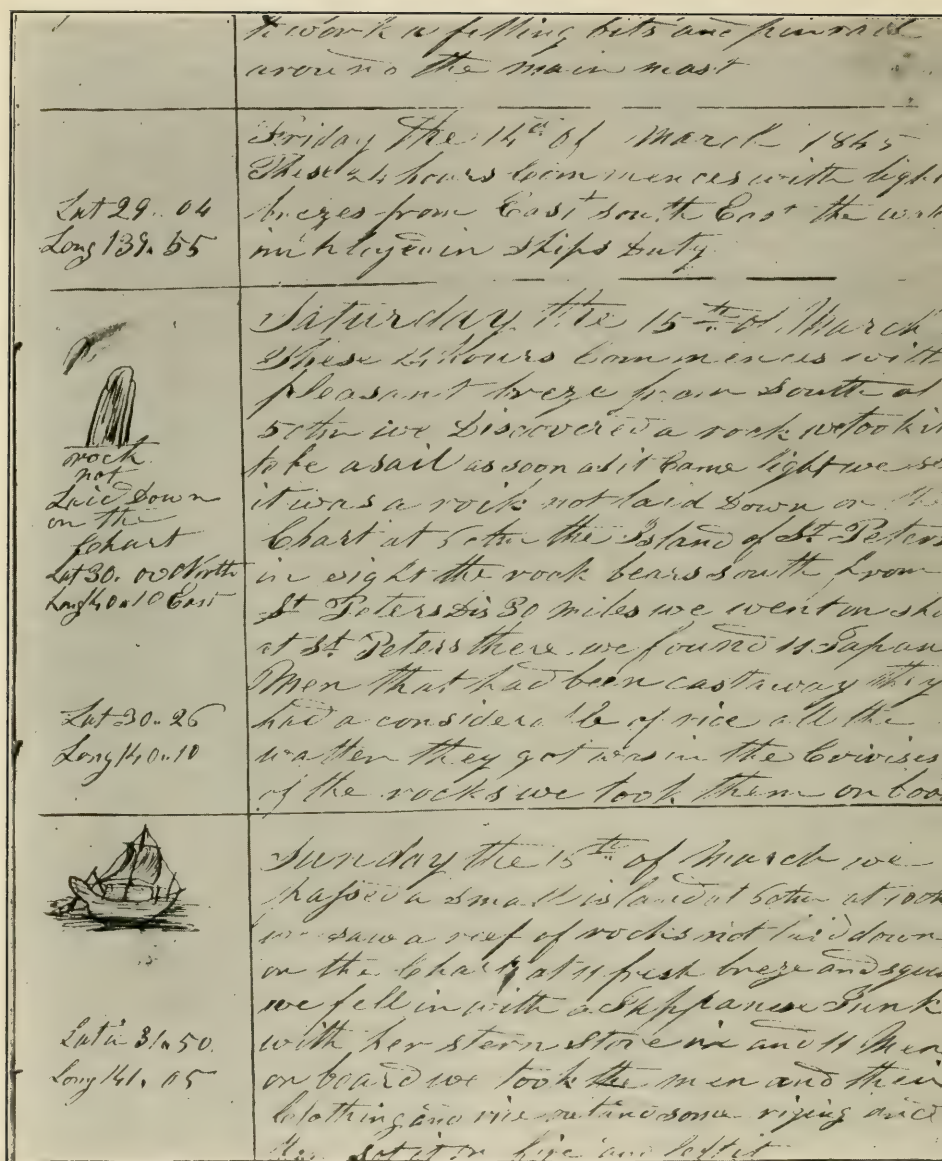 to work a fitting bits and pinrail
around the main mast
Friday the 14th of March 1845
These 24 hours Commences with light
brezes from East south East the
in ships Duty
Lat 29.. 04
Long 139.. 55
Saturday the 15th of March
These 24 hours Commences with
pleasant breze from South at
we Discovered a rock we took it
to be a sail as soon as it Came light we
it was a rock not laid Down on the
Chart at the Island of St Peters
in sight the rock bears south from
St Peters Dis 30 miles we went on
at St Peters there we found 11 Japan
Men that had been castaway they
had a considerable of rice all the
watter they got was in the
of the rocks we took them on
rock
not
Laid Down
on the
Chart
Lat 30.. 00 North
Long 140.. 10 East
Lat 30.. 26
Long 140.. 10
Sunday the of March we
passed a small island at at
we saw a reef of rocks not laid down
on the Chart at 11 fresh breze and
we fell in with a Junk
with her stern Stove in and 11 Men
on board we took the men and their
Clothing and rice and some and
set it on fire and left it
Lat 31.. 50
Long 141.. 05